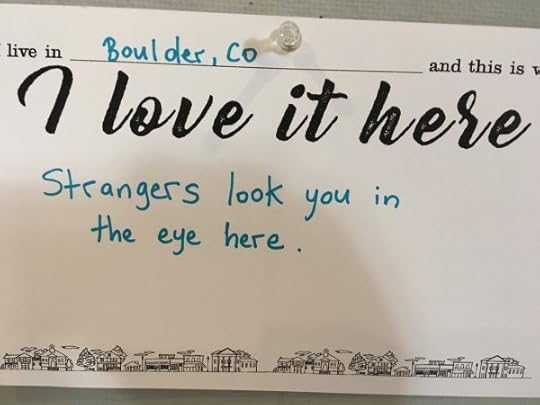 live in Boulder, CO and this is
I love it here
Strangers look you in
the eye here.